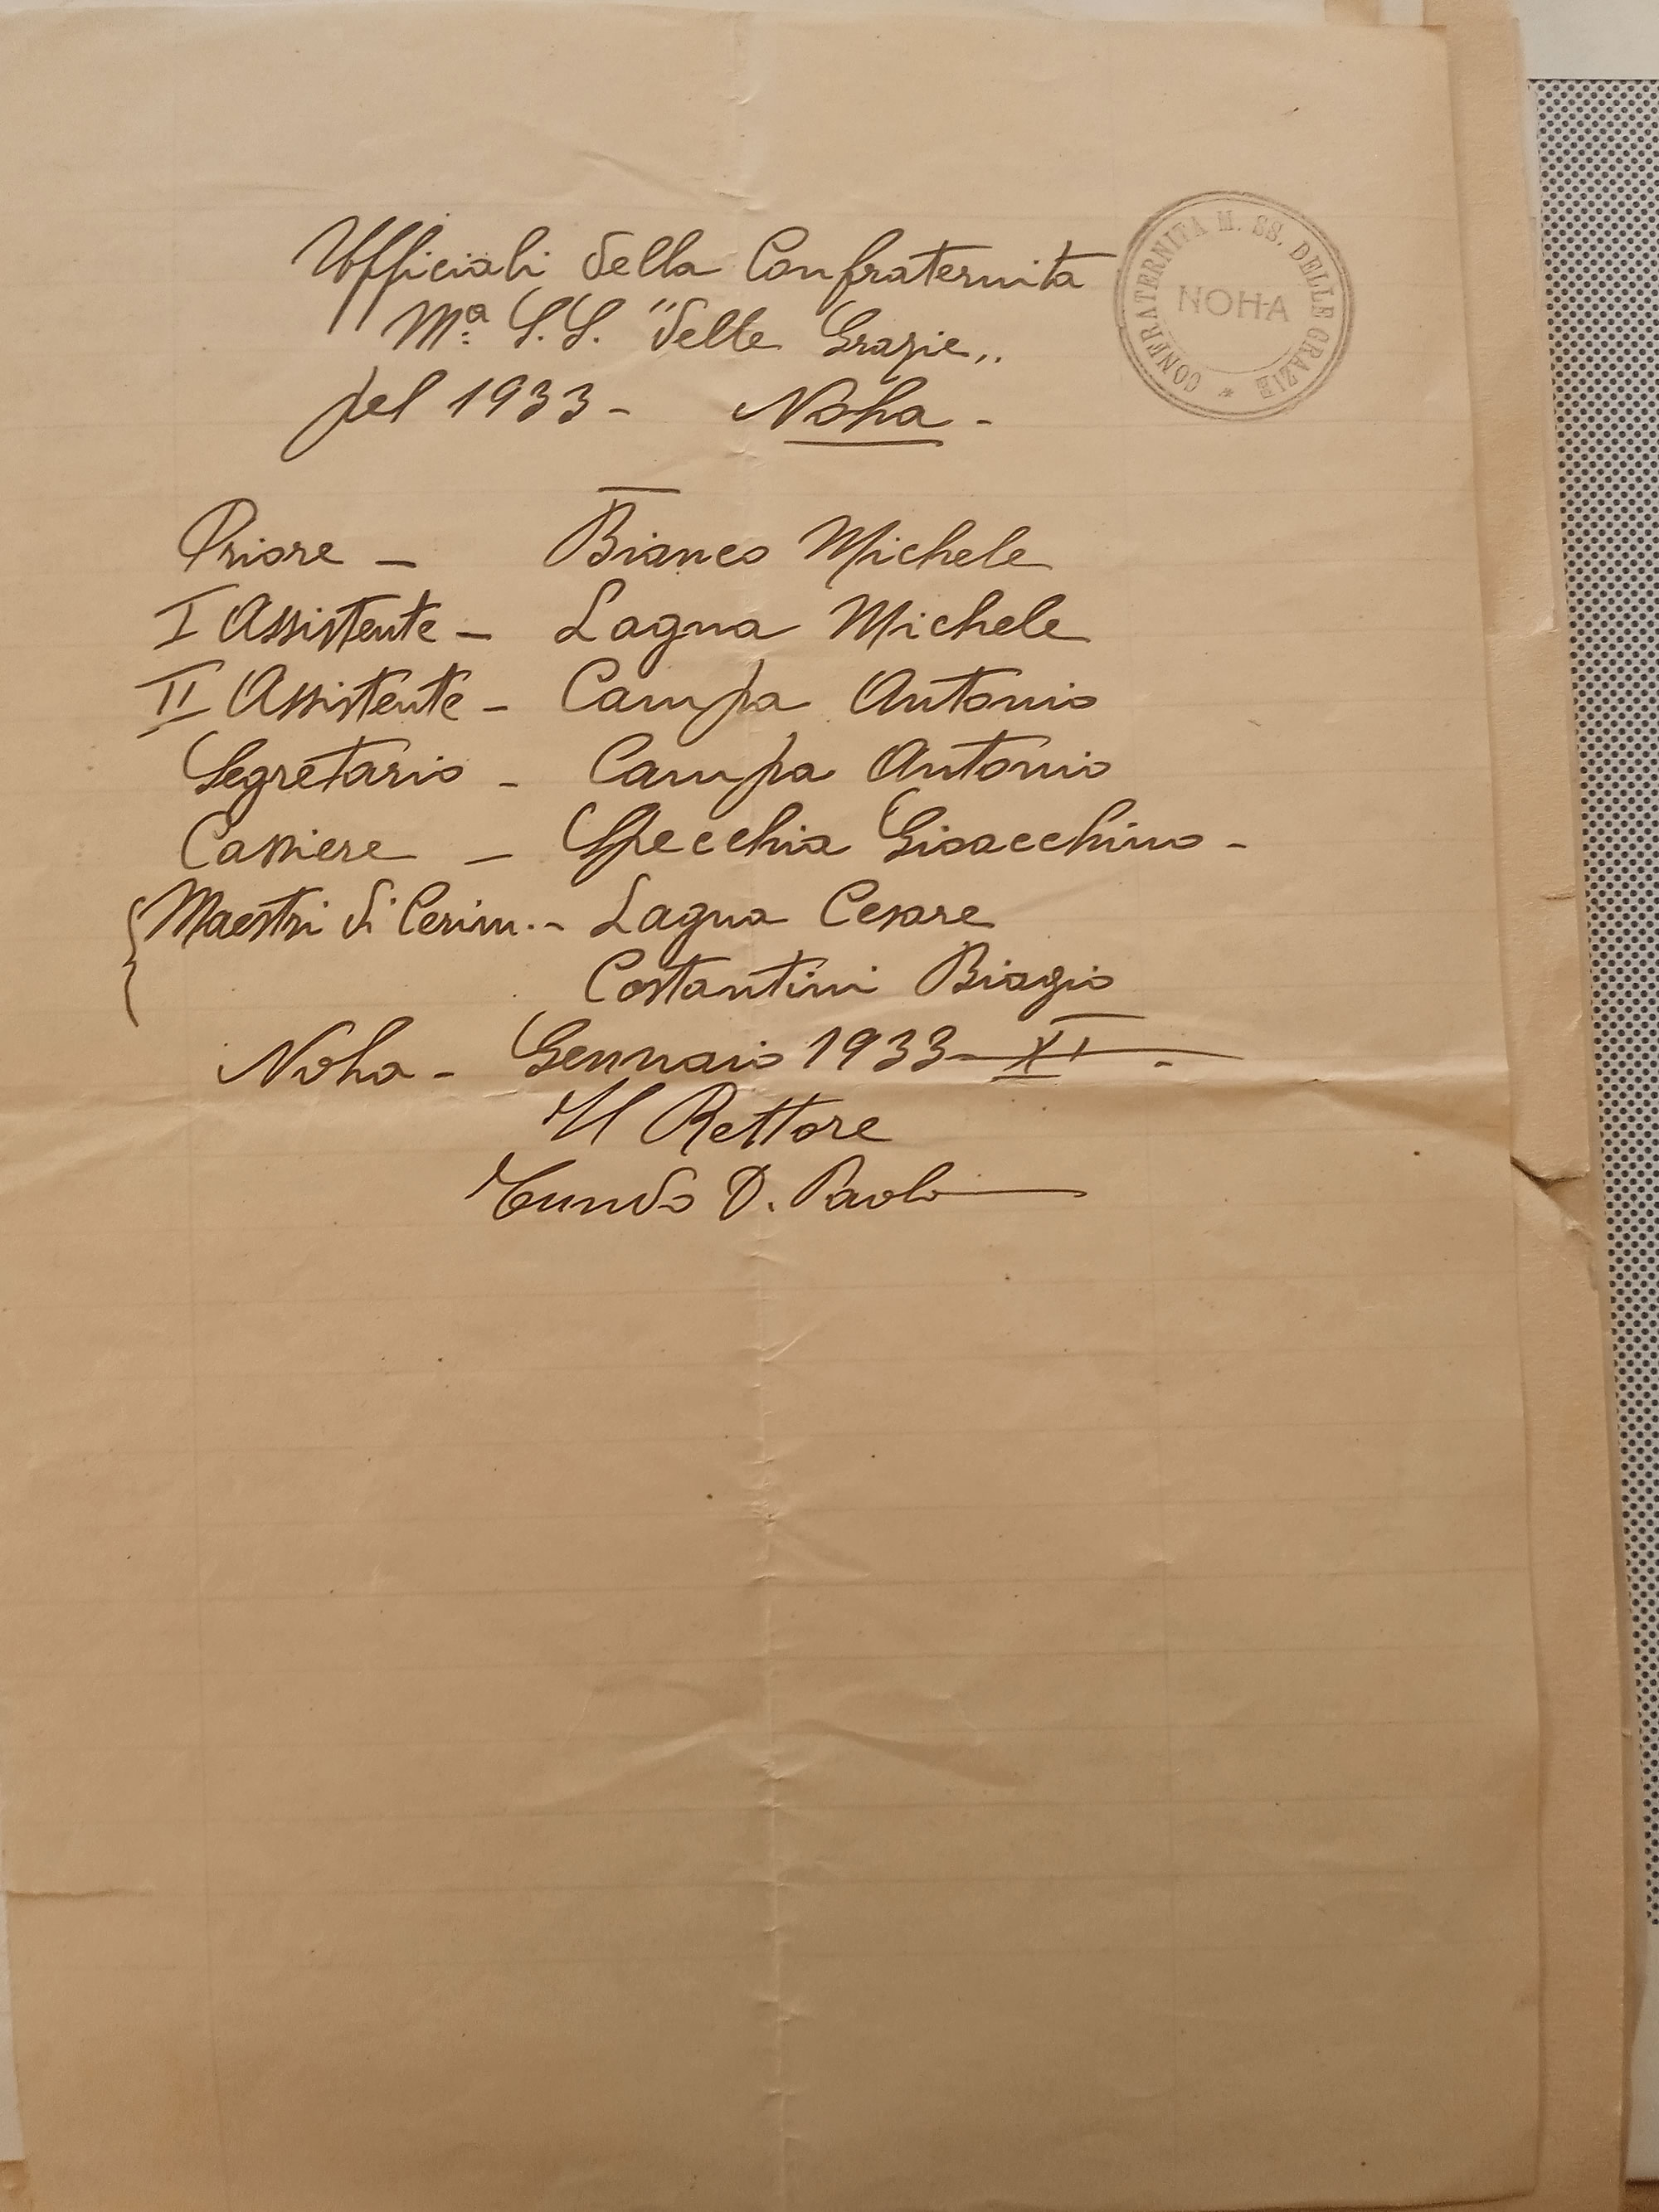 Ufficiali della Confraternita
Mª. S.S. "delle Grazie„
pel 1933 - Noha -
CONFRATERNITA M. SS. DELLE GRAZIE *
NOHA
Priore - Bianco Michele
I Assistente - Lagna Michele
II Assistente - Campa Antonio
Segretario - Campa Antonio
Cassiere - Specchia Gioacchino -
Maestri di Cerim. - Lagna Cesare
Costantini Biagio
Noha - Gennaio 1933 - XI -
Il Rettore
Tundo D. Paolo